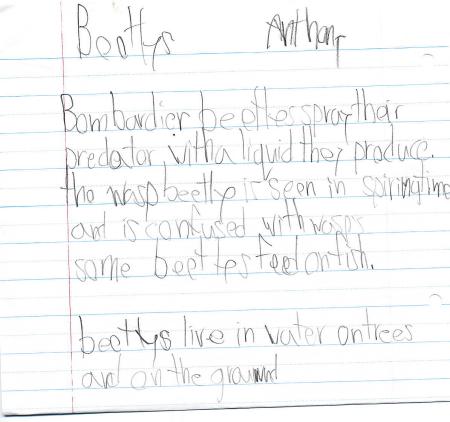 Beettys Anthony
Bombardier beettes spray their
predator, with a liquid they produce.
the wasp beetly is seen in spiringtime
and is confused with wasps
some beettes feed on fish.
beettys live in water on trees
and on the ground